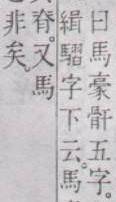 曰馬豪骭五字。
緝騽字下云。馬
脊。又馬
非矣。